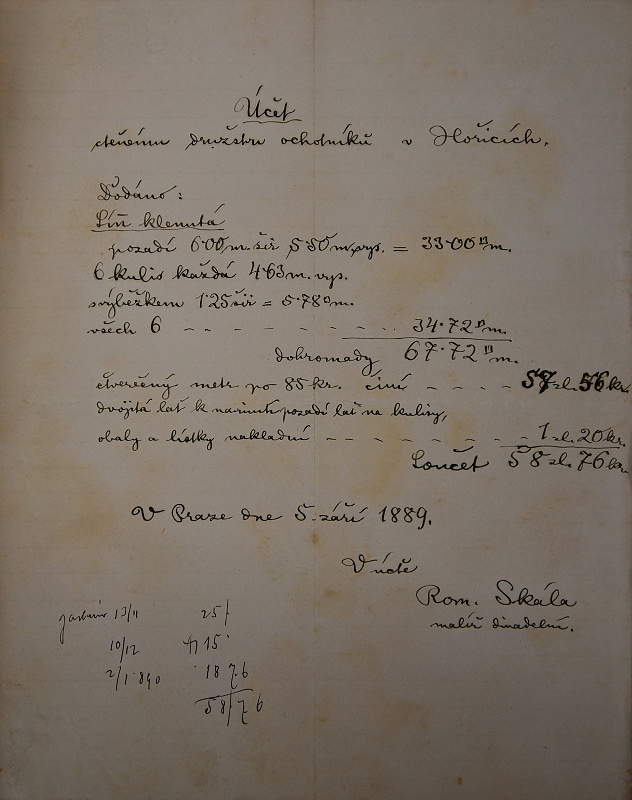 Účet
ctěnému družstvu ochotníků v Hořicích.
Dodáno:
Síň klenutá
pozadí 6·00 m. šíř 5·50 m. vys. = 33·00 □m.
6 kulis každá 4·63 m. vys.
s výběžkem 1·25 šíř = 5·78 □m.
všech 6 - - - - - - - - 34·72 □m.
dohromady 67·72 □m.
čtverečný metr po 85 kr. činí - - - - 57 zl. 56 kr.
dvojitá lať k navinutí pozadí lať na kulisy,
obaly a lístky nákladní - - - - - - - 1 zl. 20 kr.
Součet 58 zl. 76 kr.
V Praze dne 5. září 1889.
V úctě
Rom. Skála
malíř divadelní.
13/11 25/
10/12 15
2/1 890 18 76
58/76